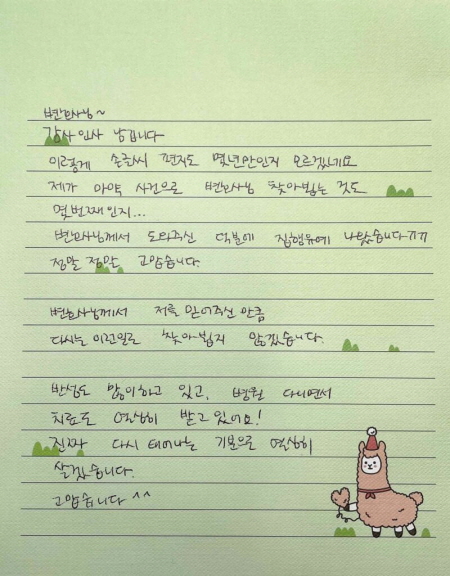 변호사님~
감사 인사 남깁니다
이렇게 손글씨 편지도 몇년만인지 모르겠네요
제가 마약 사건으로 변호사님 찾아뵙는 것도
몇번째인지...
변호사님께서 도와주신 덕분에 집행유예 나왔습니다ㅠㅠ
정말 정말 고맙습니다.
변호사님께서 저를 믿어주신 만큼
다시는 이런일로 찾아뵙지 않겠습니다.
반성도 많이하고 있고, 병원 다니면서
치료도 열심히 받고 있어요!
진짜 다시 태어나는 기분으로 열심히
살겠습니다.
고맙습니다 ^^